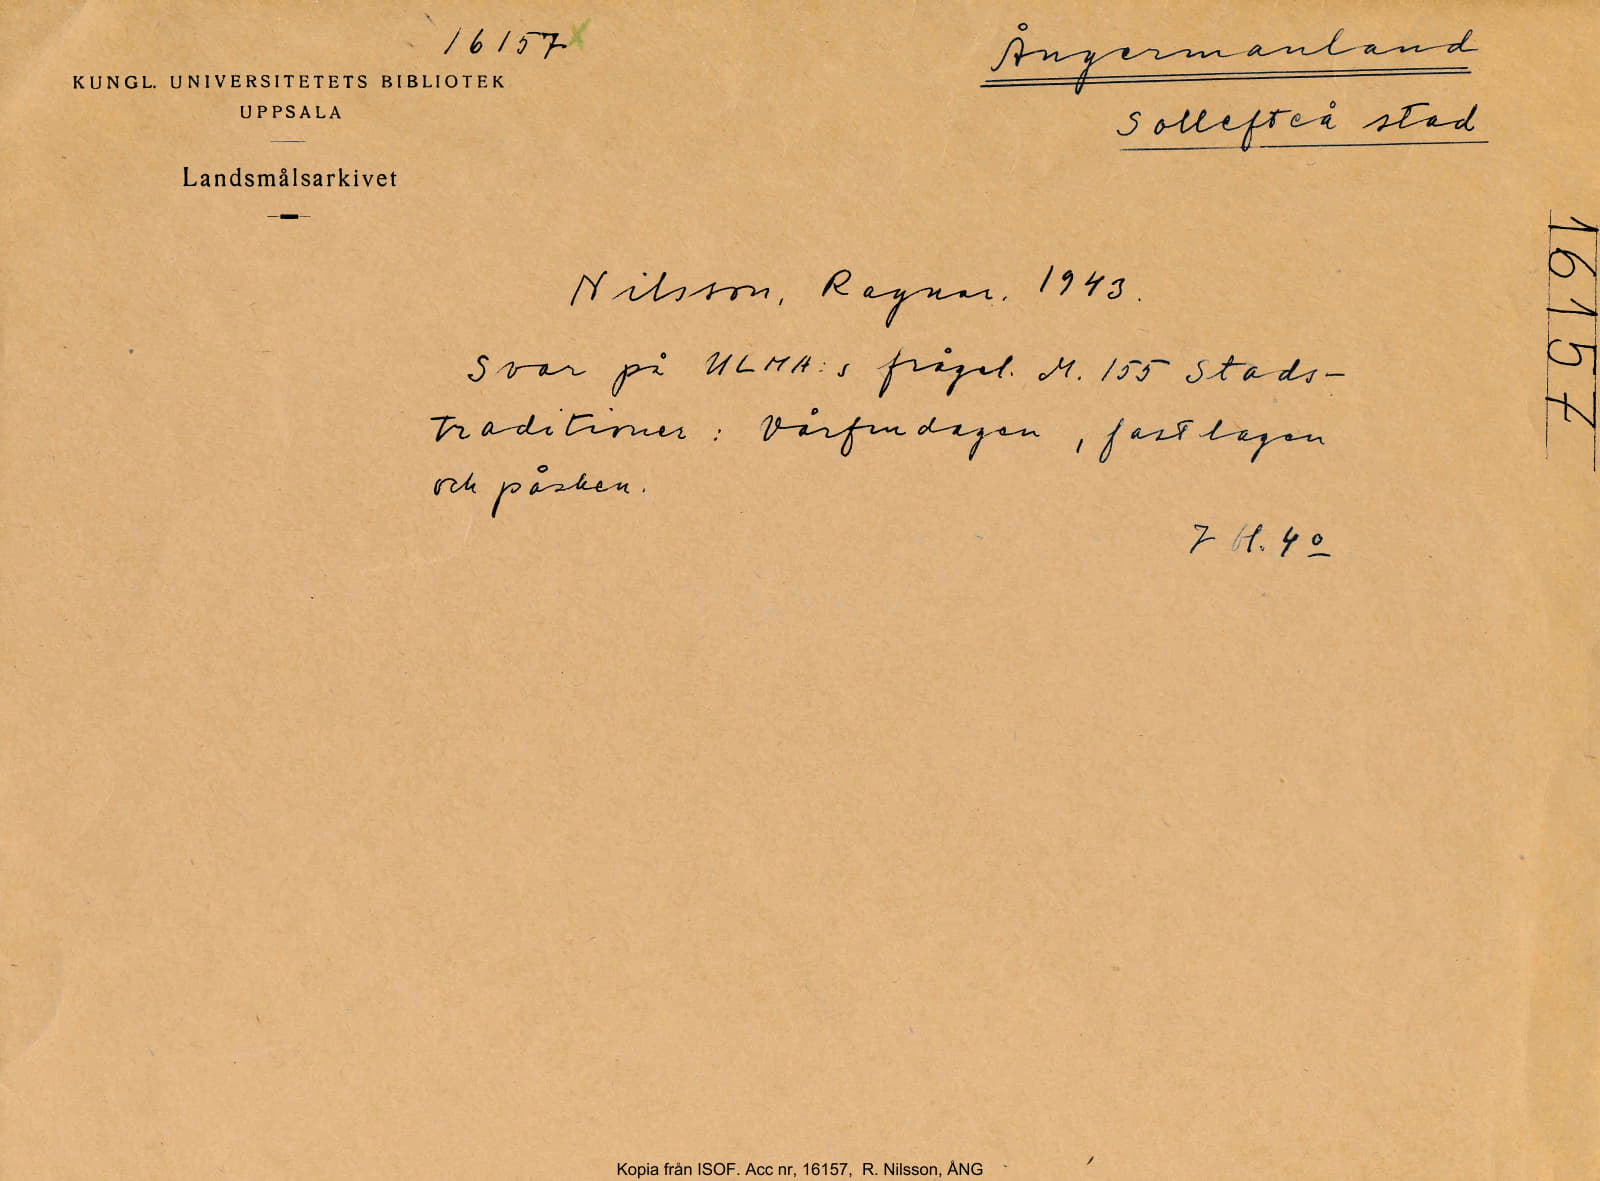 16157x
KUNGL. UNIVERSITETETS BIBLIOTEK
UPPSALA
Landsmålsarkivet
Ångermanland
Sollefteå stad
16157
Nilsson, Ragnar. 1943.
Svar på ULMA:s frågel. M. 155 Stads-
traditioner: Vårfrudagen, fastlagen
och påsken.
7 bl. 4o
Kopia från ISOF. Acc nr, 16157, R. Nilsson, ÅNG